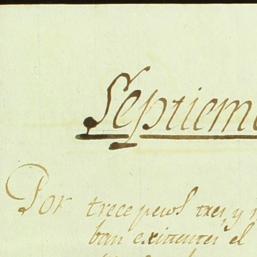 Septiem
Por trece pesos tres, y
ban existentes el